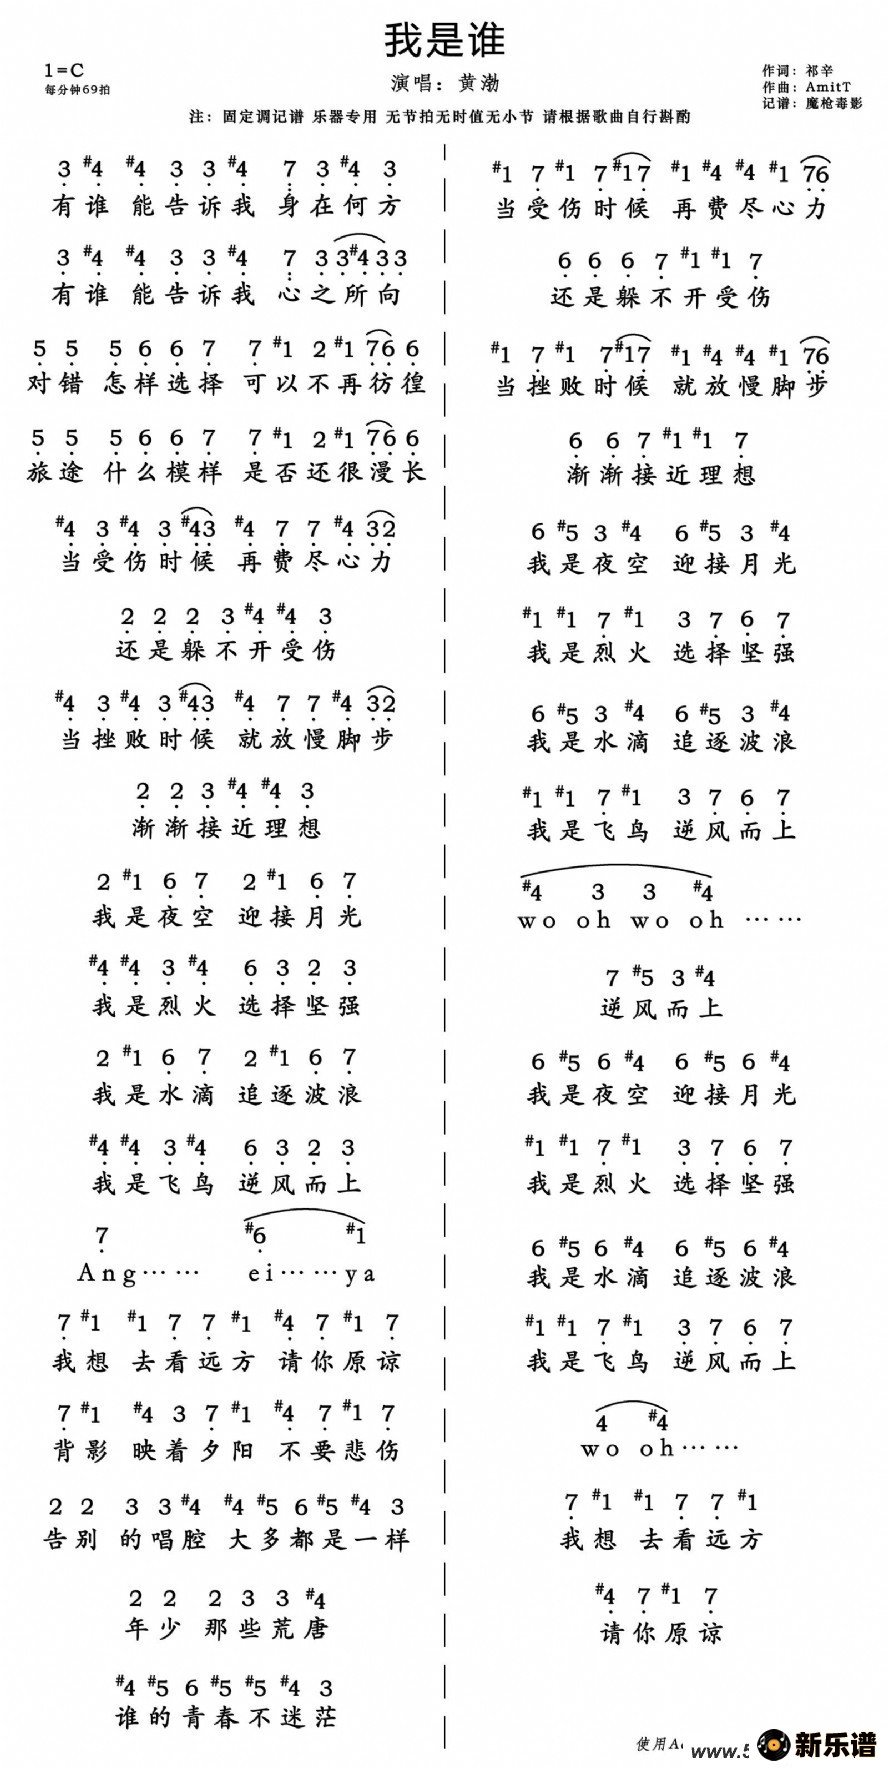 我是谁
1=C
每分钟69拍
演唱：黄渤
作词：祁辛
作曲：AmitT
记谱：魔枪毒影
注：固定调记谱 乐器专用 无节拍无时值无小节 请根据歌曲自行斟酌
3 #4 #4 3 3 #4 7 3 #4 3
有谁 能告诉我 身在何方
3 #4 #4 3 3 #4 7 3 3#4 3 3
有谁 能告诉我 心之所向
5 5 5 6 6 7 7 #1 2 #1 76 6
对错 怎样选择 可以不再彷徨
5 5 5 6 6 7 7 #1 2 #1 76 6
旅途 什么模样 是否还很漫长
#4 3 #4 3 #43 #4 7 7 #4 32
当受伤时候 再费尽心力
2 2 2 3 #4 #4 3
还是躲不开受伤
#4 3 #4 3 #43 #4 7 7 #4 32
当挫败时候 就放慢脚步
2 2 3 #4 #4 3
渐渐接近理想
2 #1 6 7 2 #1 6 7
我是夜空 迎接月光
#4 #4 3 #4 6 3 2 3
我是烈火 选择坚强
2 #1 6 7 2 #1 6 7
我是水滴 追逐波浪
#4 #4 3 #4 6 3 2 3
我是飞鸟 逆风而上
7 #6 #1
Ang…… ei……ya
7 #1 #1 7 7 #1 #4 7 #1 7
我想 去看远方 请你原谅
7 #1 #4 3 7 #1 #4 7 #1 7
背影 映着夕阳 不要悲伤
2 2 3 3 #4 #4 #5 6 #5 #4 3
告别 的唱腔 大多都是一样
2 2 2 3 3 #4
年少 那些荒唐
#4 #5 6 #5 #5 #4 3
谁的青春不迷茫
#1 7 #1 7 #17 #1 #4 #4 #1 76
当受伤时候 再费尽心力
6 6 6 7 #1 #1 7
还是躲不开受伤
#1 7 #1 7#17 #1 #4 #4 #1 76
当挫败时候 就放慢脚步
6 6 7 #1 #1 7
渐渐接近理想
6 #5 3 #4 6 #5 3 #4
我是夜空 迎接月光
#1 #1 7 #1 3 7 6 7
我是烈火 选择坚强
6 #5 3 #4 6 #5 3 #4
我是水滴 追逐波浪
#1 #1 7 #1 3 7 6 7
我是飞鸟 逆风而上
#4 3 3 #4
wo oh wo oh ……
7 #5 3 #4
逆风而上
6 #5 6 #4 6 #5 6 #4
我是夜空 迎接月光
#1 #1 7 #1 3 7 6 7
我是烈火 选择坚强
6 #5 6 #4 6 #5 6 #4
我是水滴 追逐波浪
#1 #1 7 #1 3 7 6 7
我是飞鸟 逆风而上
4 #4
wo oh……
7 #1 #1 7 7 #1
我想 去看远方
#4 7 #1 7
请你原谅
使用A
www.5
新乐谱